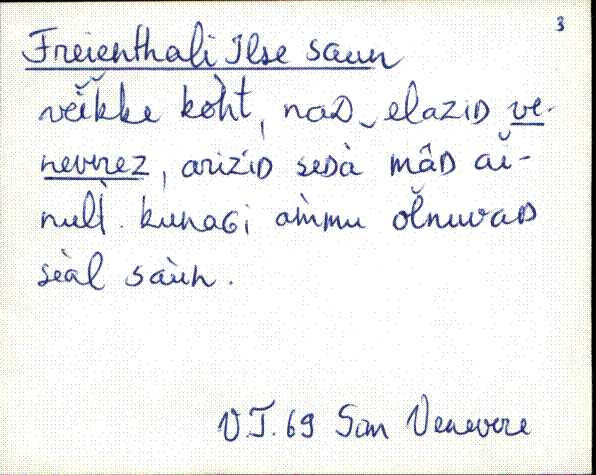 3
Freienthali Ilse saun
vĕikke kòht, naD‿elaziD ve-
neverez, ariziD seDà mâD aĭ-
nult. kunaGi àmmu ŏlnuvaD
seàl saùn.
V.J. 69 San Venevere